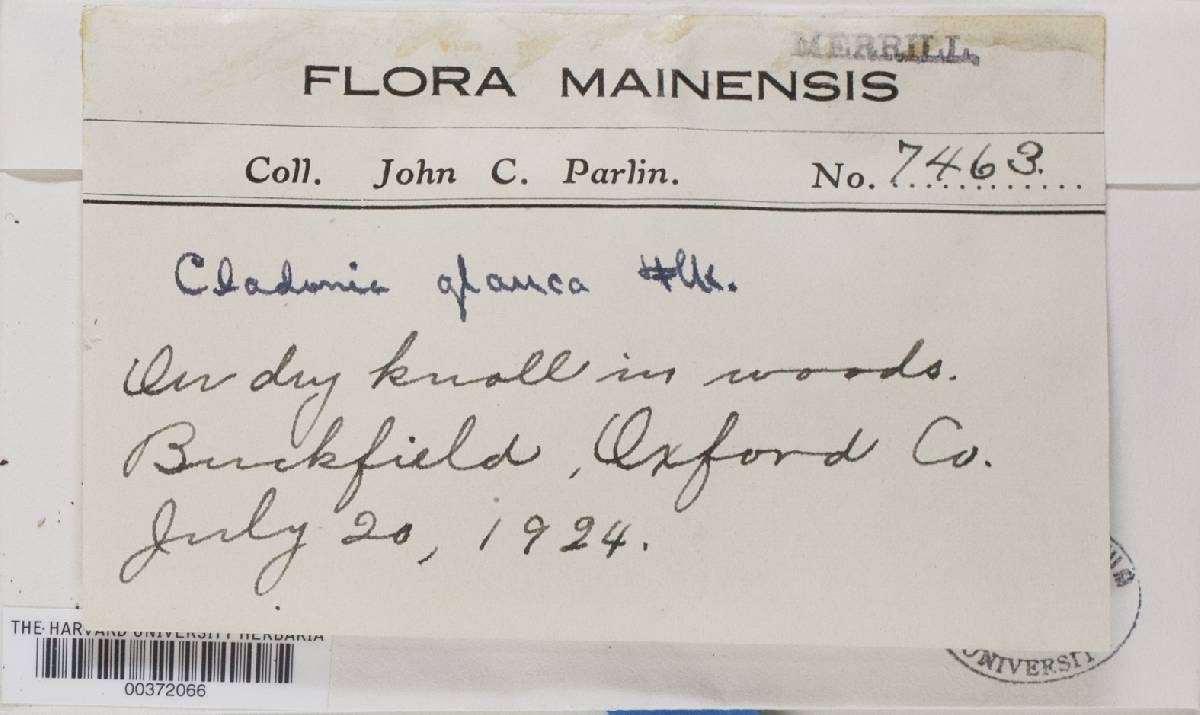 MERRILL.
FLORA MAINENSIS
Coll. John C. Parlin. No. 7463.
Cladonia glauca Flk.
On dry knoll in woods.
Buckfield, Oxford Co.
July 20, 1924.
THE HARVARD UNIVERSITY HERBARIA
00372066
UNIVERSIT